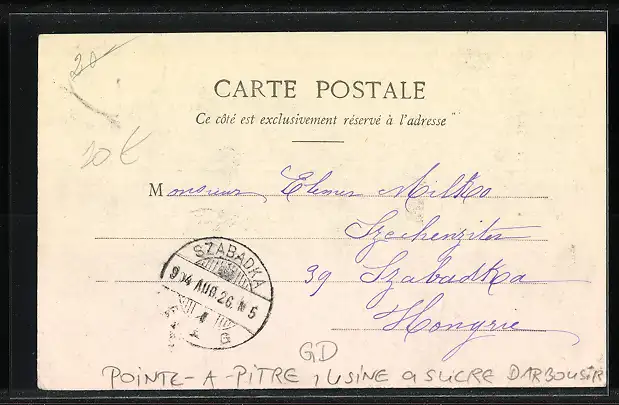 20
CARTE POSTALE
Ce côté est exclusivement réservé à l'adresse
10 €
Monsieur Elemer Milko
Szechenziter
39 Szabadka
Hongrie
SZABADKA
904 AUG. 26. N 5
GD
POINTE-A-PITRE, USINE a SUCRE DARBOUSIR